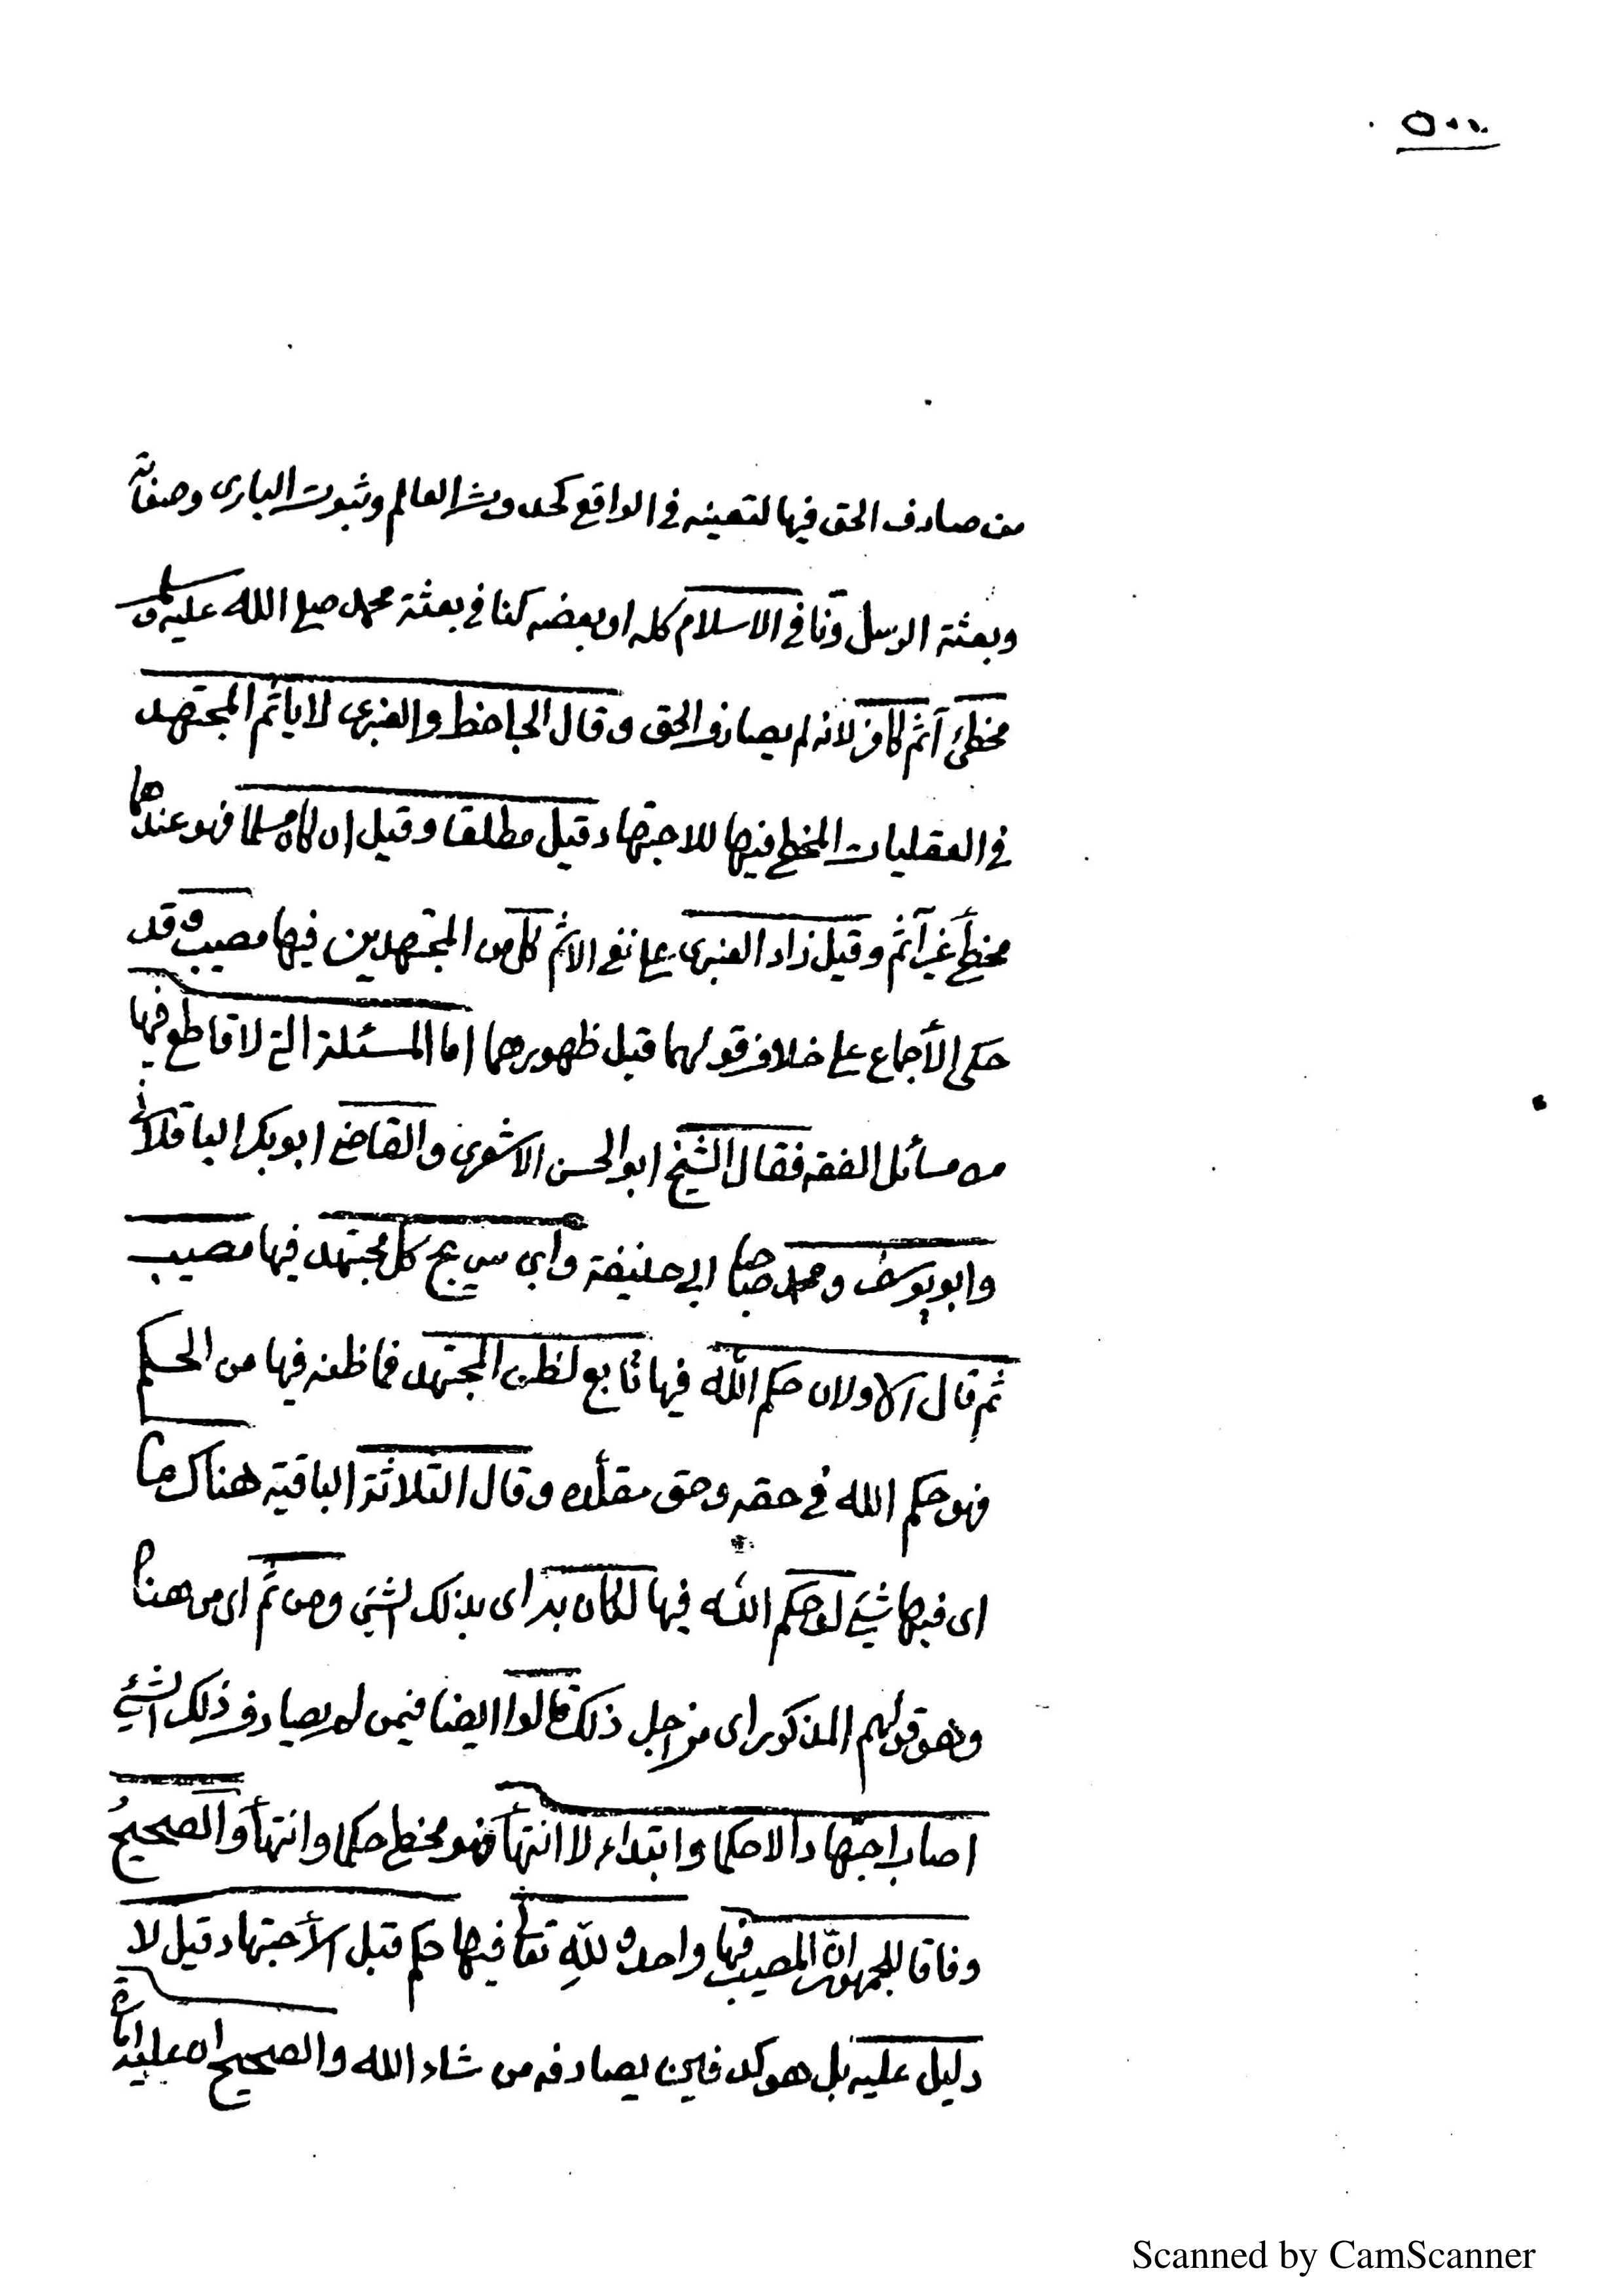 ٥٠٠
من صادف الحق فيها لتعينه فى الواقع كحدوث العالم وثبوت البارى وصفاته
وبعثة الرسل ونافى الاسلام كله او بعضه كنافى بعثة محمد صلى الله عليه وسلم
مخطئ آثم كافر لانه لم يصادف الحق وقال الجاحظ والعنبرى لا يأثم المجتهد
فى العقليات المخطئ فيها للاجتهاد قيل مطلقا وقيل ان كان مسلما فهو عندهما
مخطئ غير آثم وقيل زاد العنبرى على نفى الاثم كل من المجتهدين فيها مصيب وقد
حكى الأجماع على خلاف قولهما قبل ظهورهما اما المسئلة التى لا قاطع فيها
من مسائل الفقه فقال الشيخ ابو الحسن الاشعرى والقاضى ابو بكر الباقلانى
وابو يوسف ومحمد صاحبا ابى حنيفة وابن سريج كل مجتهد فيها مصيب
ثم قال الاولان حكم الله فيها تابع لظن المجتهد فما ظنه فيها من الحكم
فهو حكم الله فى حقه وحق مقلده وقال الثلاثة الباقية هناك ما
اى فيها شيئ لو حكم الله فيها لكان به اى بذلك الشيئ ومن ثم اى من هنا
وهو قولهم المذكور اى من اجل ذلك قالوا ايضا فيمن لم يصادف ذلك الشيئ
اصاب اجتهادا لا حكما وابتداء لا انتهأ فهو مخطئ حكما وانتهأ والصحيحُ
وفاقا للجمهور انّ المصيب فيها واحد و لله تعالى فيها حكم قبل الأجتهاد قيل لا
دليل عليه بل هو كدفين يصادفه من شاء الله والصحيح ان عليه امارة
Scanned by CamScanner